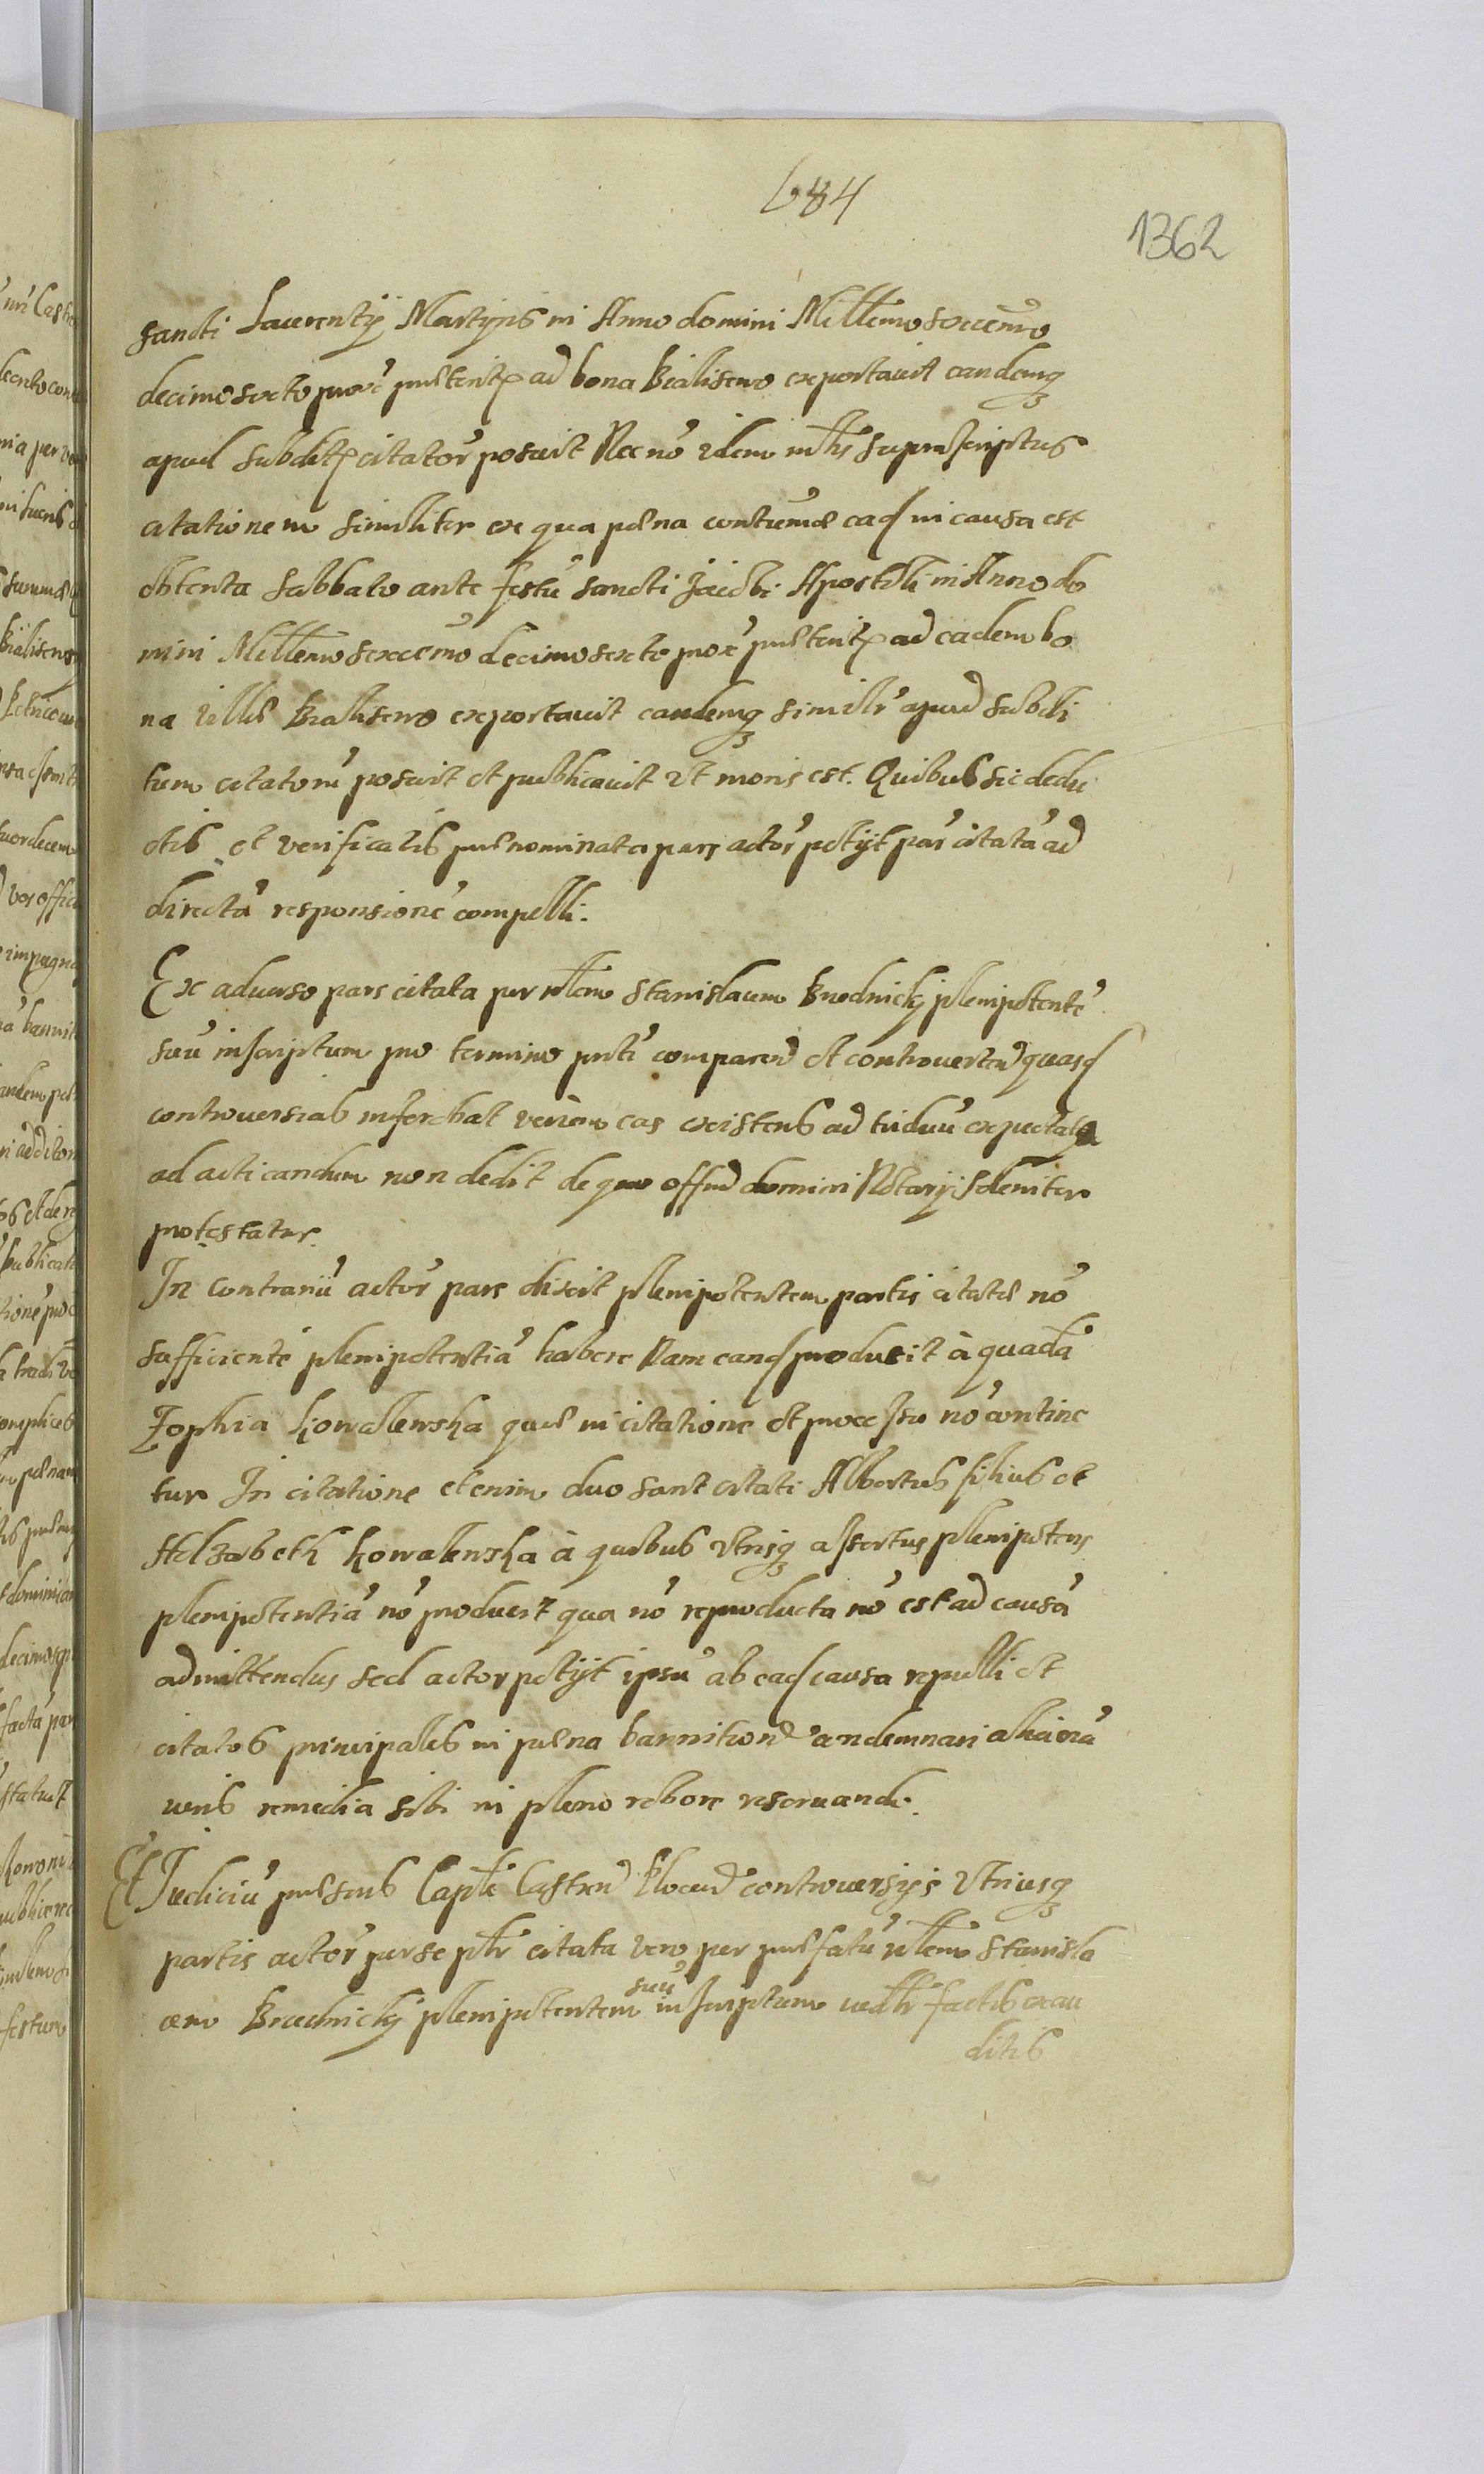 684
1362
sancti Laurentij Martyris in Anno domini Millemo sexcemo
decimosexto proxe praeteritu ad bona Bialiseno exportavit eandemq
apud subditu citator posuit Nec no idem mtis suprascriptus
citationem similiter ex qua paena contumae ead in causa est
obtenta Sabbato ante festu sancti Jacobi Apostoli in Anno do
mini Millemo sexcemo decimo sexto prox praeterit ad eadem bo
na villae Bialiseno exportavit eandemq similr apud subdi
tum citatoru posuit et publicavit vt moris est. Quibus sic dedu
ctis et verificatis praenominata pars actor petijt par citata ad
directa responsione compelli.
Ex adverso pars citata per nlem Stanislaum Brudnicky plenipotente
suu inscriptum pro termino pnti comparen et controverten quasd
controversias inferebat verum eas existens ad triduu expectata
ad acticandum non dedit de quo offm domini Notarij solemniter
protestatur.
In contrariu actor pars dixit plenipotentem partis citatae no
sufficiente plenipotentia habere Nam eand produxit à quada
Zophia Kowalewska quae in citatione et processu no contine
tur In citatione etenim duo sunt citati Albertus filius et
Helzabeth Kowalewska à quibus vtrisq assertus plenipotens
plenipotentia no produxit qua no reproducta no est ad causa
admittendus sed actor petijt ipsu ab ead causa repelli et
citatos principales in paena bannitione condemnari
remedia sibi in pleno robore reservando.
Et Judiciu praesens Capte Castren Plocen controversijs vtriusq
partis actor per se ptr citata vero per praefatu nlem Stanisla
um Brudnicky plenipotentem suu inscriptum factis exau
ditis